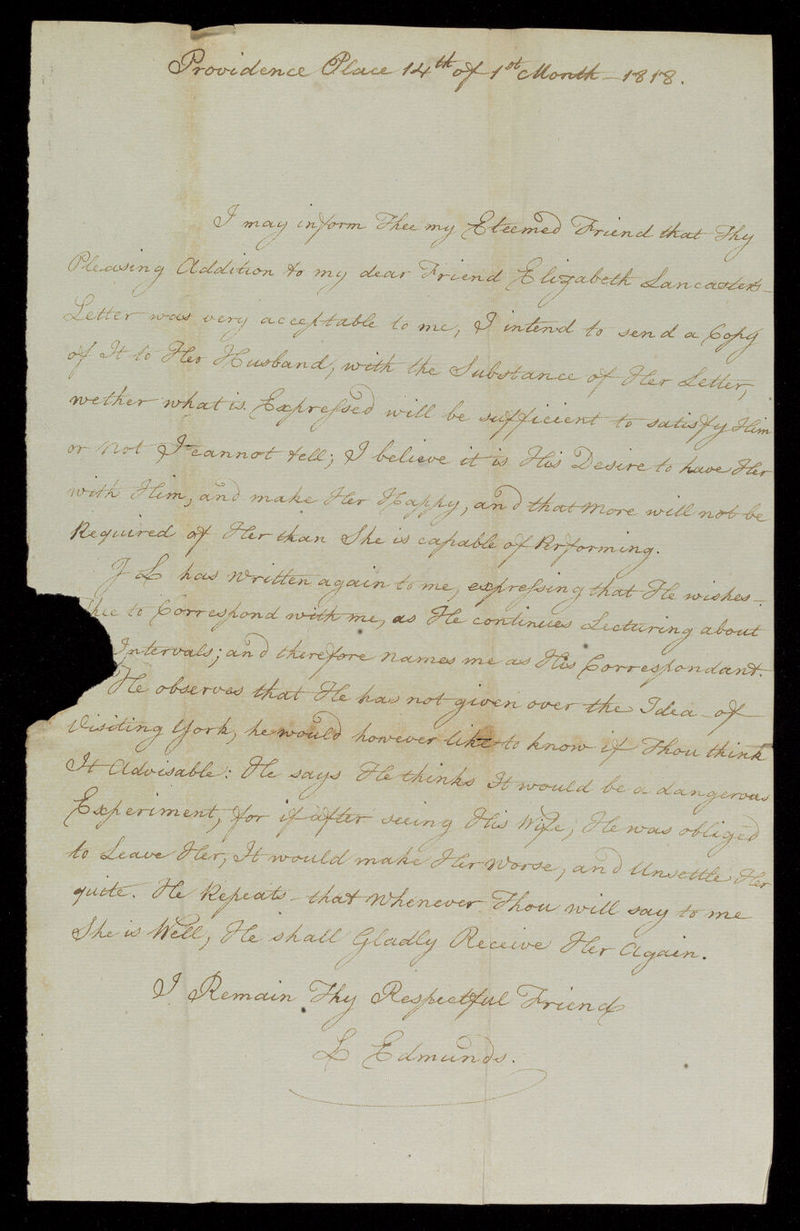 Providence Place 14th of 1st Month - 1818.
I may inform Thee my Esteemed Friend that Thy
Pleasing Addition to my dear Friend Elizabeth Lancaster's
Letter was very acceptable to me, I intend to send a Copy
of It to Her Husband, with the Substance of Her Letter,
wether what is Expressed will be sufficient to satisfy Him
or Not I cannot tell; I believe it is His Desire to have Her
with Him, and make Her Happy, and that More will not be
Required of Her than She is capable of Performing.
J L has written again to me, expressing that He wishes -
Thee to Correspond with me, as He continues Lecturing about
Intervals; and therefore names me as His Correspondant.
He observes that He has not given over the Idea of
Visiting York, he would however like to know if Thou think
It Advisable: He says He thinks It would be a dangerous
Experiment, for if after seeing His Wife, He was obliged
to Leave Her, It would make Her Worse, and Unsettle Her
quite. He Repeats - that Whenever Thou will say to me
She is Well, He shall Gladly Receive Her Again.
I Remain Thy Respectful Friend
L Edmunds.